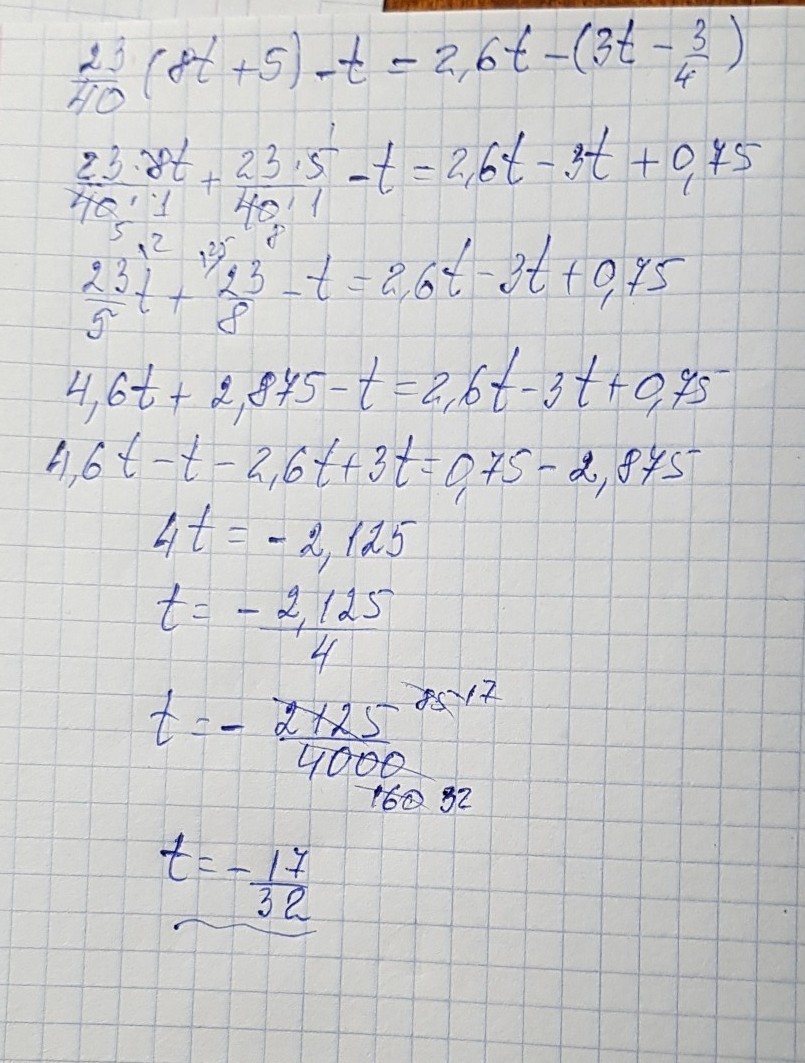 23/40 (8t + 5) - t = 2,6t - (3t - 3/4)
23·8t/40·1 + 23·5/40·1 - t = 2,6t - 3t + 0,75
23/5 t + 23/8 - t = 2,6t - 3t + 0,75
4,6t + 2,875 - t = 2,6t - 3t + 0,75
4,6t - t - 2,6t + 3t = 0,75 - 2,875
4t = - 2,125
t = - 2,125/4
t = - 2125/4000 85 17 160 32
t = - 17/32